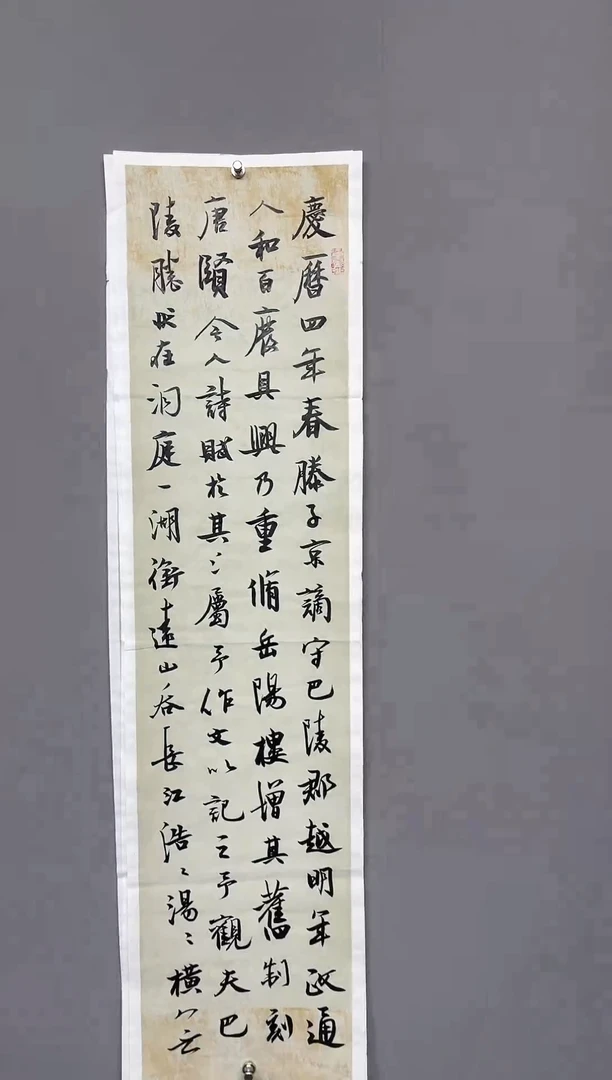 慶曆四年春滕子京謫守巴陵郡越明年政通
人和百廢具興乃重脩岳陽樓增其舊制刻
唐賢今人詩賦於其上屬予作文以記之予觀夫巴
陵勝狀在洞庭一湖銜遠山吞長江浩々湯々橫無